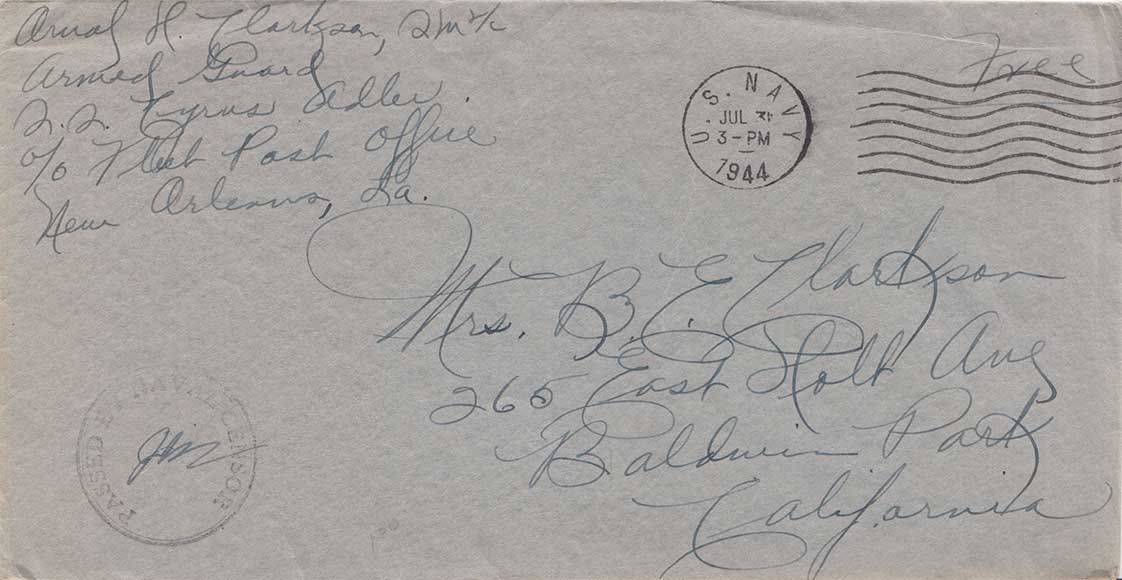 Arnal H. Clarkson, SM 2/c
Armed Guard
S.S. Cyrus Adler
c/o Fleet Post Office
New Orleans, La.
Free
U. S. NAVY
JUL 31
3-PM
1944
Mrs. B. E. Clarkson
265 East Holt Ave
Baldwin Park
California
PASSED BY NAVAL CENSOR